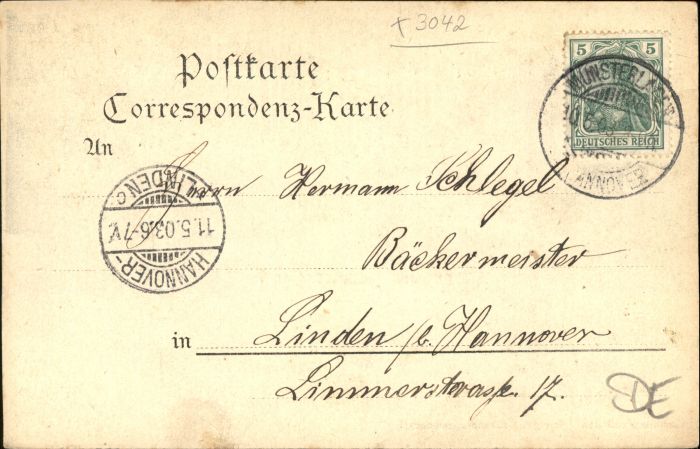 + 3042
5 5
DEUTSCHES REICH
MUNSTERLAGER
HANNOVER
Postkarte
Correspondenz-Karte
An
Herrn Hermann Schlegel
Bäckermeister
in Linden b/ Hannover
Limmerstrasse 17.
LINDEN
11.5.03.6-7V.
HANNOVER-
DE